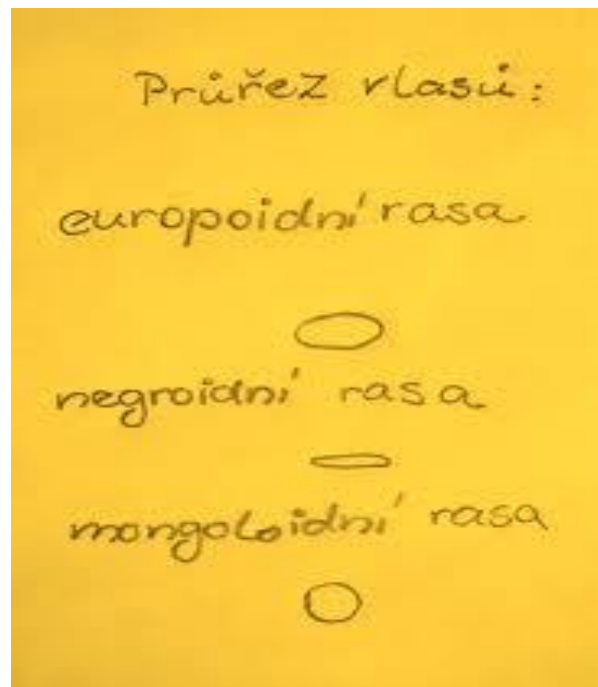 Průřez vlasů:
europoidní rasa
negroidní rasa
mongoloidní rasa